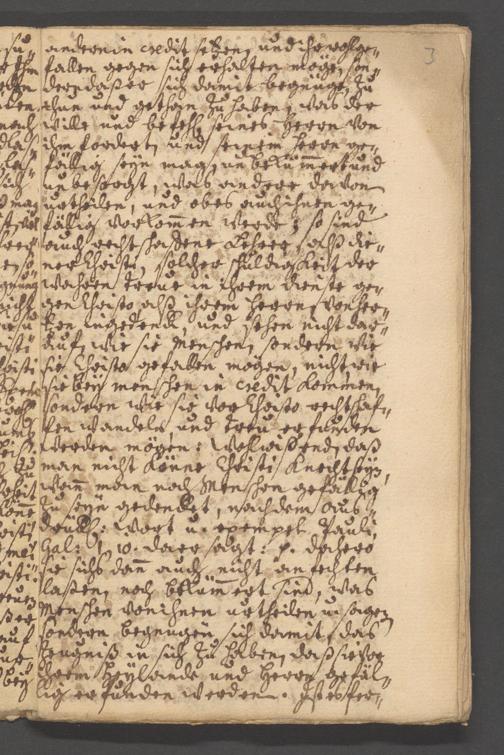 3
andern in credit setzen, und ihr wolge-
fallen gegen sich erhalten möge, son-
dern daß er sich damit begnüge, zu
thun und gethan zu haben, was der
wille und befehl seines Herrn von
ihm fordert, und seinem Herrn ge-
fällig seyn mag, unbekümmert und
unbesorgt, was andere davon
urtheilen, und ob es auch ihnen ge-
fällig vorkommen werde; so sind
auch rechtschaffene Lehrer, alß die-
ner Christi, solcher schuldigkeit der
wahren treue in ihrem dienste ge-
gen Christo alß ihrem Herrn, von her-
tzen ingedenck, und sehen nicht dar-
auf, wie sie Menschen, sondern wie
sie Christo gefallen mögen, nicht wie
sie bey menschen in credit kommen,
sondern wie sie vor Christo rechtschaf-
fen wandeln und treu erfunden
werden mögen: Wohlwißend, daß
man nicht könne Christi Knecht seyn,
wenn man noch Menschen gefällig
zu seyn gedencket, nach dem aus-
druckl: Wort u. exempel Pauli,
Gal: 1, 10. da er sagt: p. dahero
sie sichs dann auch nicht anfechten
laßen, noch bekümmert sind, was
Menschen von ihnen urtheilen u. sagen,
sondern begnügen sich damit, das
Zeugniß in sich zu haben, daß sie vor
ihrem Heylande und Herrn gefäl-
lig erfunden werden. Ist es fer-